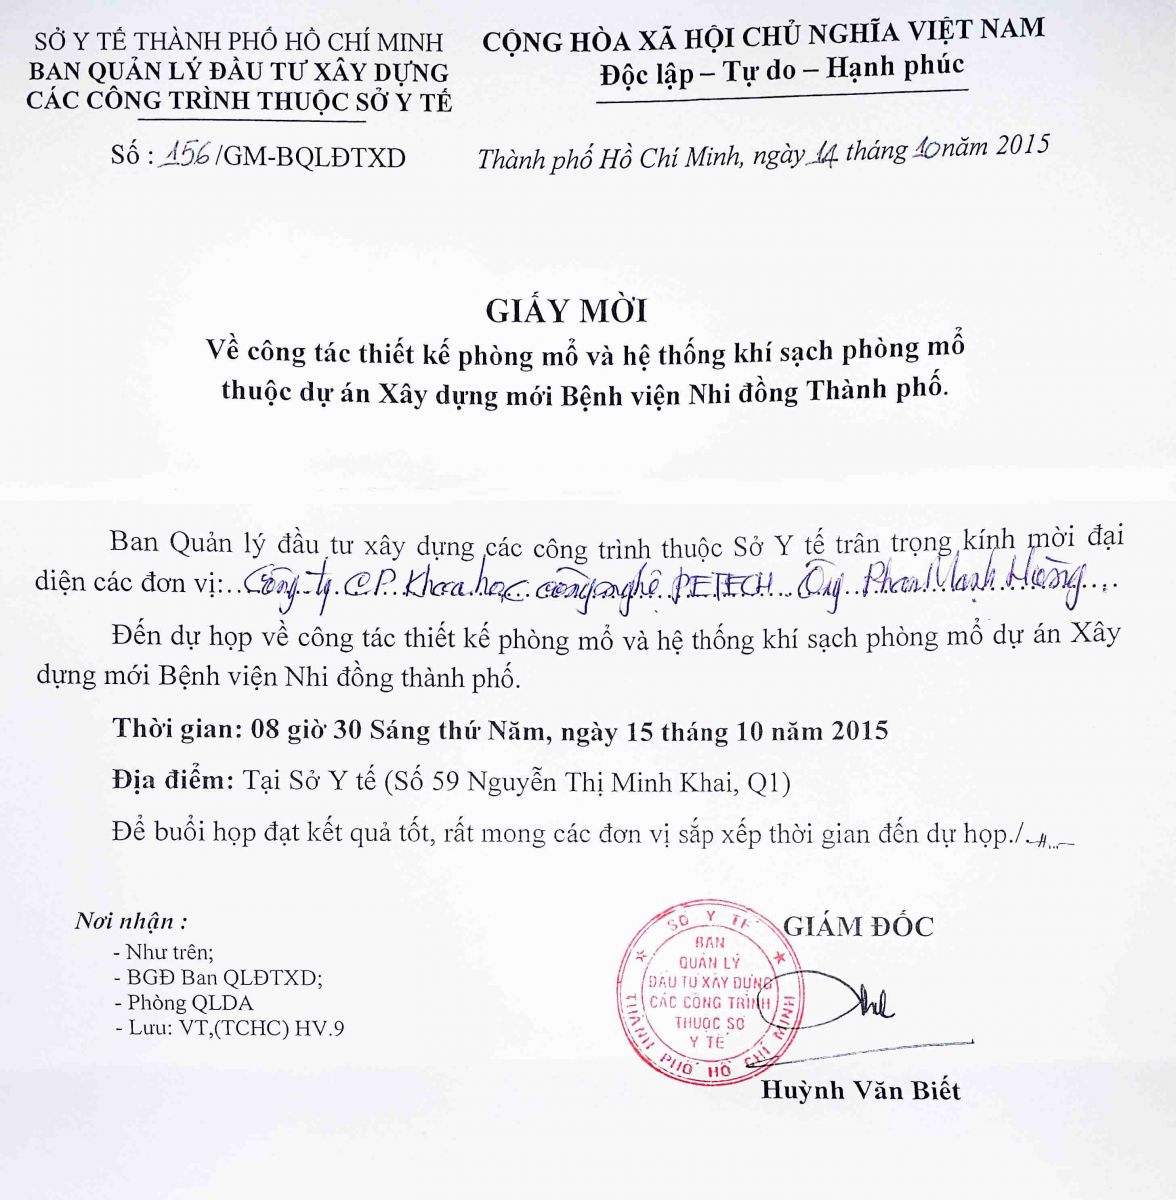 SỞ Y TẾ THÀNH PHỐ HỒ CHÍ MINH
BAN QUẢN LÝ ĐẦU TƯ XÂY DỰNG
CÁC CÔNG TRÌNH THUỘC SỞ Y TẾ
Số : 156/GM-BQLĐTXD
CỘNG HÒA XÃ HỘI CHỦ NGHĨA VIỆT NAM
Độc lập – Tự do – Hạnh phúc
Thành phố Hồ Chí Minh, ngày 14 tháng 10 năm 2015
GIẤY MỜI
Về công tác thiết kế phòng mổ và hệ thống khí sạch phòng mổ
thuộc dự án Xây dựng mới Bệnh viện Nhi đồng Thành phố.
Ban Quản lý đầu tư xây dựng các công trình thuộc Sở Y tế trân trọng kính mời đại
diện các đơn vị:..Công ty CP. Khoa học công nghệ PETECH...Ông Phan Mạnh Hùng...
Đến dự họp về công tác thiết kế phòng mổ và hệ thống khí sạch phòng mổ dự án Xây
dựng mới Bệnh viện Nhi đồng thành phố.
Thời gian: 08 giờ 30 Sáng thứ Năm, ngày 15 tháng 10 năm 2015
Địa điểm: Tại Sở Y tế (Số 59 Nguyễn Thị Minh Khai, Q1)
Để buổi họp đạt kết quả tốt, rất mong các đơn vị sắp xếp thời gian đến dự họp./.
Nơi nhận :
- Như trên;
- BGĐ Ban QLĐTXD;
- Phòng QLDA
- Lưu: VT,(TCHC) HV.9
GIÁM ĐỐC
SỞ Y TẾ
BAN
QUẢN LÝ
ĐẦU TƯ XÂY DỰNG
CÁC CÔNG TRÌNH
THUỘC SỞ
Y TẾ
THÀNH PHỐ HỒ CHÍ MINH
Huỳnh Văn Biết